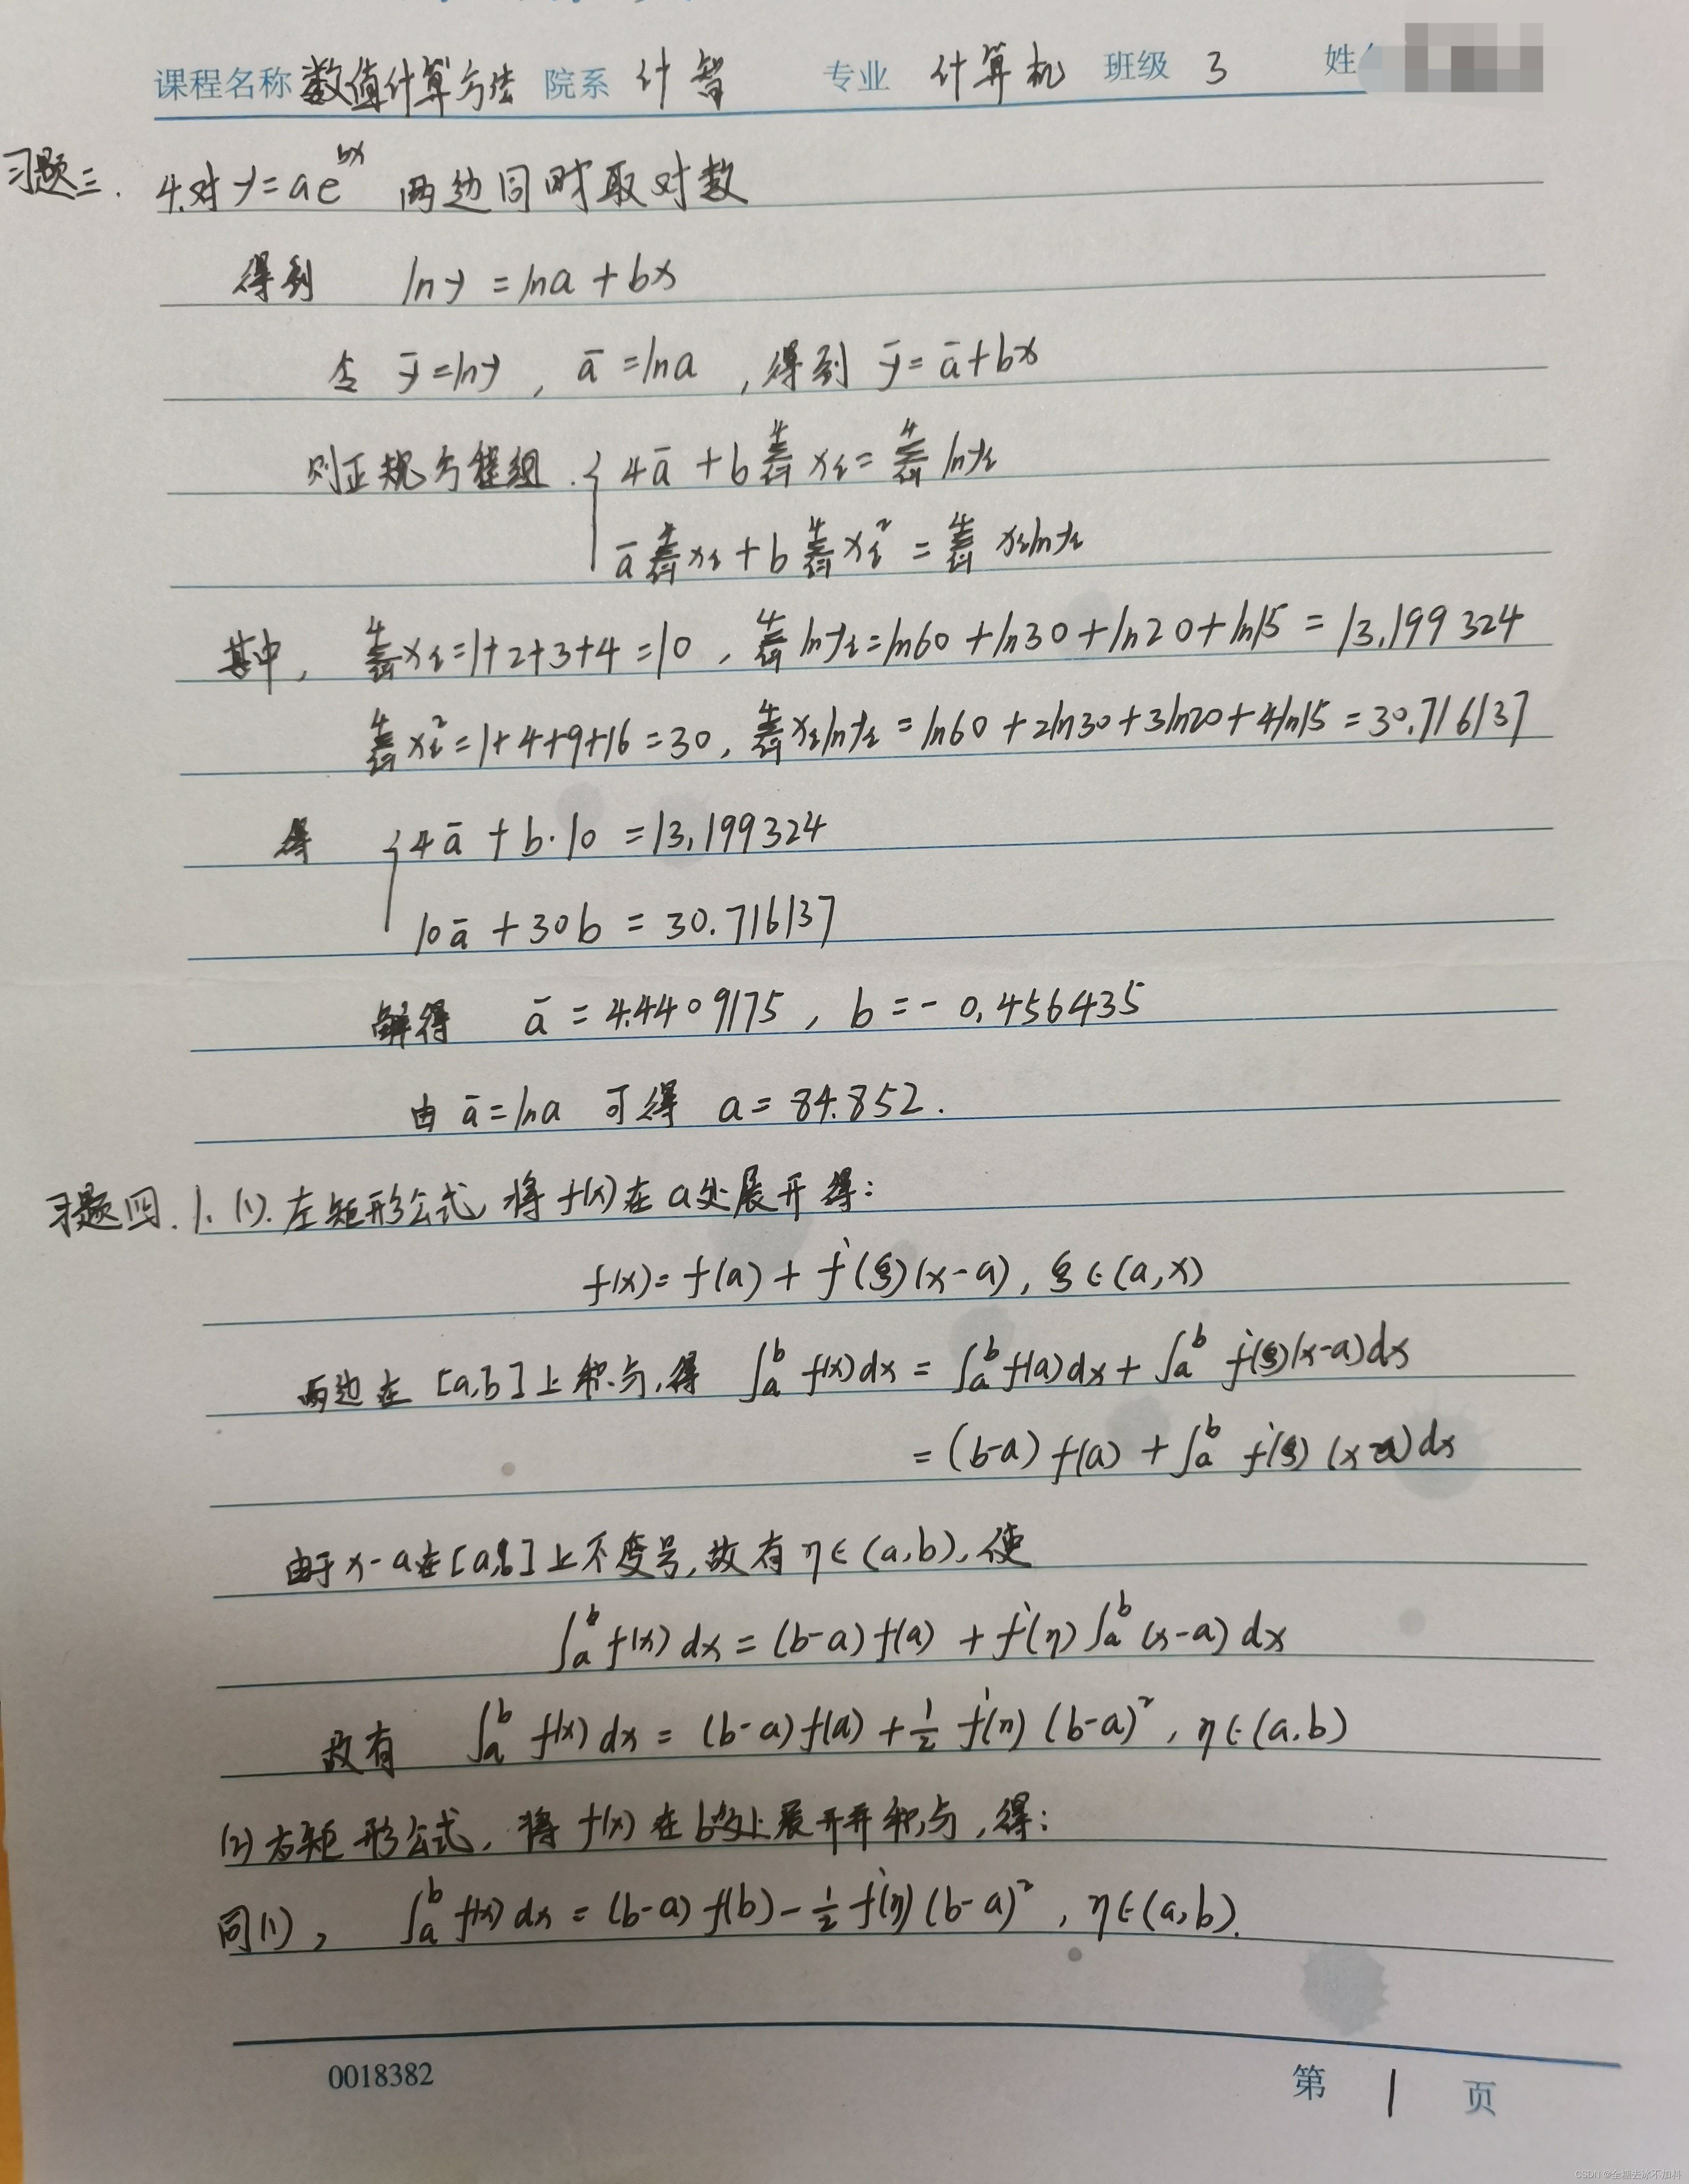 课程名称 数值计算方法 院系 计智 专业 计算机 班级 3 姓
习题三. 4.对 y=ae^{bx} 两边同时取对数
得到 lny=lna+bx
令 ȳ=lny, ā=lna, 得到 ȳ=ā+bx
则正规方程组. { 4ā+b∑_{i=1}^{4}x_i=∑_{i=1}^{4}lny_i
ā∑_{i=1}^{4}x_i+b∑_{i=1}^{4}x_i^2=∑_{i=1}^{4}x_ilny_i
其中, ∑_{i=1}^{4}x_i=1+2+3+4=10, ∑_{i=1}^{4}lny_i=ln60+ln30+ln20+ln15=13.199324
∑_{i=1}^{4}x_i^2=1+4+9+16=30, ∑_{i=1}^{4}x_ilny_i=ln60+2ln30+3ln20+4ln15=30.716137
得 { 4ā+b·10=13.199324
10ā+30b=30.716137
解得 ā=4.4409175, b=-0.456435
由 ā=lna 可得 a=84.852.
习题四. 1. (1). 左矩形公式, 将f(x)在a处展开得:
f(x)=f(a)+f'(ξ)(x-a), ξ∈(a,x)
两边在[a,b]上积分,得 ∫_a^b f(x)dx=∫_a^b f(a)dx+∫_a^b f'(ξ)(x-a)dx
=(b-a)f(a)+∫_a^b f'(ξ)(x-a)dx
由于x-a在[a,b]上不变号,故有η∈(a,b),使
∫_a^b f(x)dx=(b-a)f(a)+f'(η)∫_a^b(x-a)dx
故有 ∫_a^b f(x)dx=(b-a)f(a)+½f'(η)(b-a)^2, η∈(a,b)
(2) 右矩形公式, 将f(x)在b处展开并积分,得:
同(1), ∫_a^b f(x)dx=(b-a)f(b)-½f'(η)(b-a)^2, η∈(a,b).
0018382 第 1 页
CSDN @全糖去冰不加料